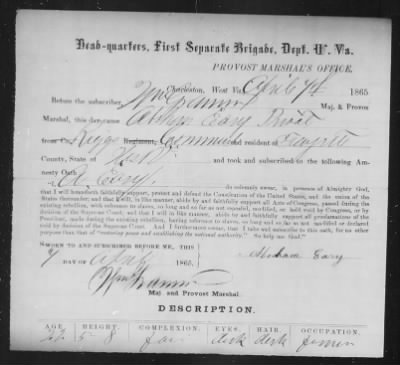 Head-quarters, First Separate Brigade, Dept. W. Va.
PROVOST MARSHAL'S OFFICE,
Charleston, West Va. April 7th 1865
Before the subscriber, Maj. & Provos
Marshal, this day came
from Co. Regiment, and resident of Fayette
County, State of and took and subscribed to the following Am-
nesty Oath
I, do solemnly swear, in presence of Almighty God,
that I will henceforth faithfully support, protect and defend the Constitution of the United States, and the union of the
States thereunder; and that I will, in like manner, abide by and faithfully support all Acts of Congress, passed during the
existing rebellion, with reference to slaves, so long and so far as not repealed, modified, or held void by Congress, or by
decision of the Supreme Court; and that I will in like manner, abide by and faithfully support all proclamations of the
President, made during the existing rebellion, having reference to slaves, so long and so far as not modified or declared
void by decision of the Supreme Court. And I furthermore swear, that I take and subscribe to this oath, for no other
purpose than that of "restoring peace and establishing the national authority." So help me God."
SWORN TO AND SUBSCRIBED BEFORE ME, THIS
7 DAY OF April 1865,
Maj. and Provost Marshal.
DESCRIPTION.
AGE, HEIGHT, COMPLEXION, EYES, HAIR, OCCUPATION,
22 5-8 fair dark dark farmer